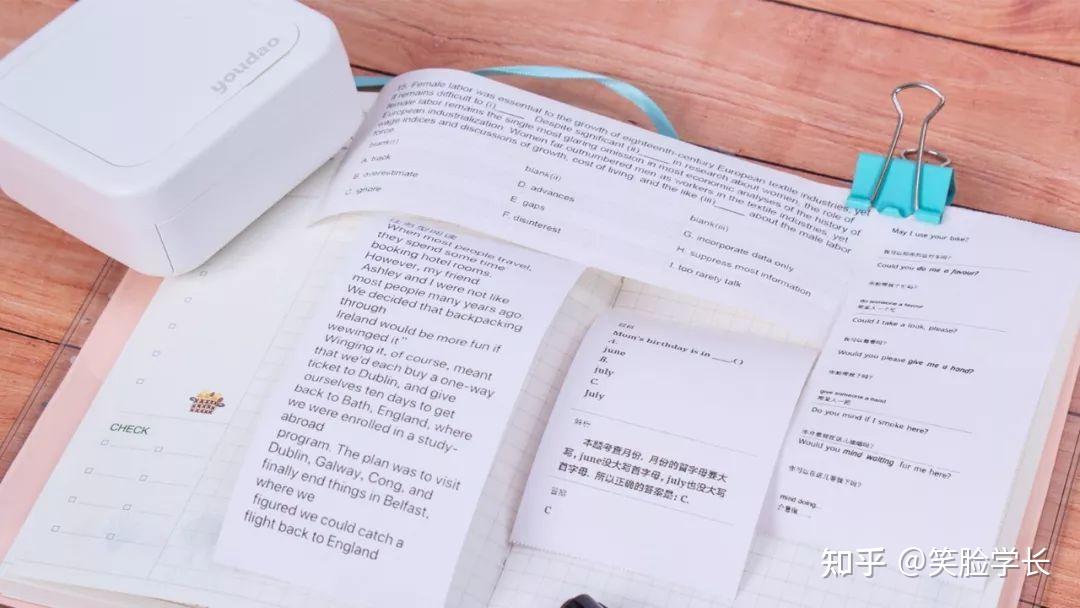 youdao
15. Female labor was essential to the growth of eighteenth-century European textile industries, yet
it remains difficult to (i)_____. Despite significant (ii)_____ in research about women, the role of
female labor remains the single most glaring omission in most economic analyses of the history of
European industrialization. Women far outnumbered men as workers in the textile industries, yet
wage indices and discussions of growth, cost of living, and the like (iii)_____ about the male labor
force.
blank(i)
A. track
B. overestimate
C. ignore
blank(ii)
D. advances
E. gaps
F. disinterest
blank(iii)
G. incorporate data only
H. suppress most information
I. too rarely talk
When most people travel,
they spend some time
booking hotel rooms.
However, my friend
Ashley and I were not like
most people many years ago.
We decided that backpacking
through
Ireland would be more fun if
wewinged it"
Winging it, of course, meant
that we'd each buy a one-way
ticket to Dublin, and give
ourselves ten days to get
back to Bath, England, where
we were enrolled in a study-
abroad
program. The plan was to visit
Dublin, Galway, Cong, and
finally end things in Belfast,
where we
figured we could catch a
flight back to England
CHECK
题目
Mom's birthday is in ____.( )
A.
june
B.
july
C.
July
解析
本题考查月份，月份的首字母要大
写，june没大写首字母，july也没大写
首字母，所以正确的答案是：C.
答案
C
May I use your bike?
我可以用你的自行车吗？
Could you do me a favour?
你能帮我个忙吗？
do someone a favour
帮某人一个忙
Could I take a look, please?
我可以看看吗？
Would you please give me a hand?
你能帮我下吗？
give someone a hand
帮某人一把
Do you mind if I smoke here?
Would you mind waiting for me here?
你可以在这儿等我下吗？
mind doing...
介意做...
知乎 @笑脸学长